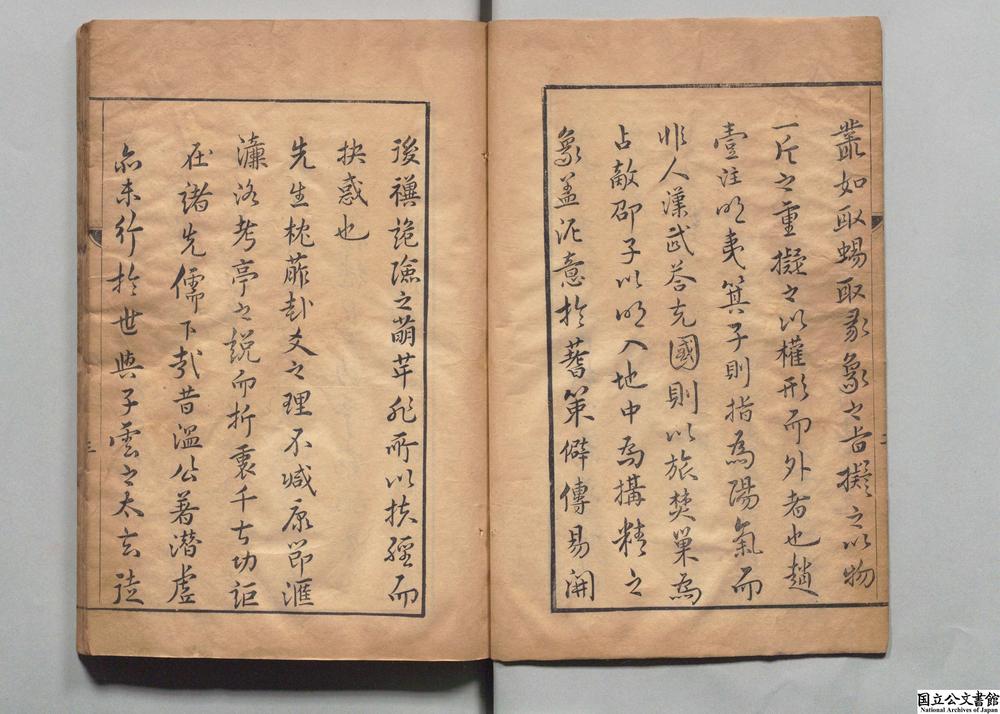 叢如取蜴取彖象之旨擬之以物
一斤之重擬之以權形而外者也趙
壹注明夷箕子則指為陽氣而
非人漢武答克國則以旅焚巢為
占敵邵子以明入地中為搆精之
象盖泥意於蓍策僻傳易開
後禩詭險之萌芽非所以扶經而
抉惑也
先生枕葄卦爻之理不減康節滙
濂洛考亭之說而折衷千古功詎
在諸先儒下哉昔溫公著潛虛
亦未行於世與子雲之太玄徒
三
国立公文書館
National Archives of Japan